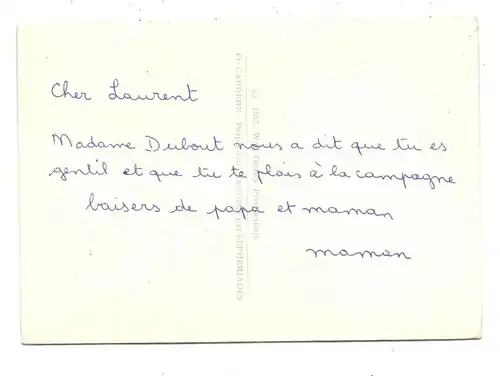 Cher Laurent
Madame Dubout nous a dit que tu es
gentil et que tu te plais à la campagne
baisers de papa et maman
maman